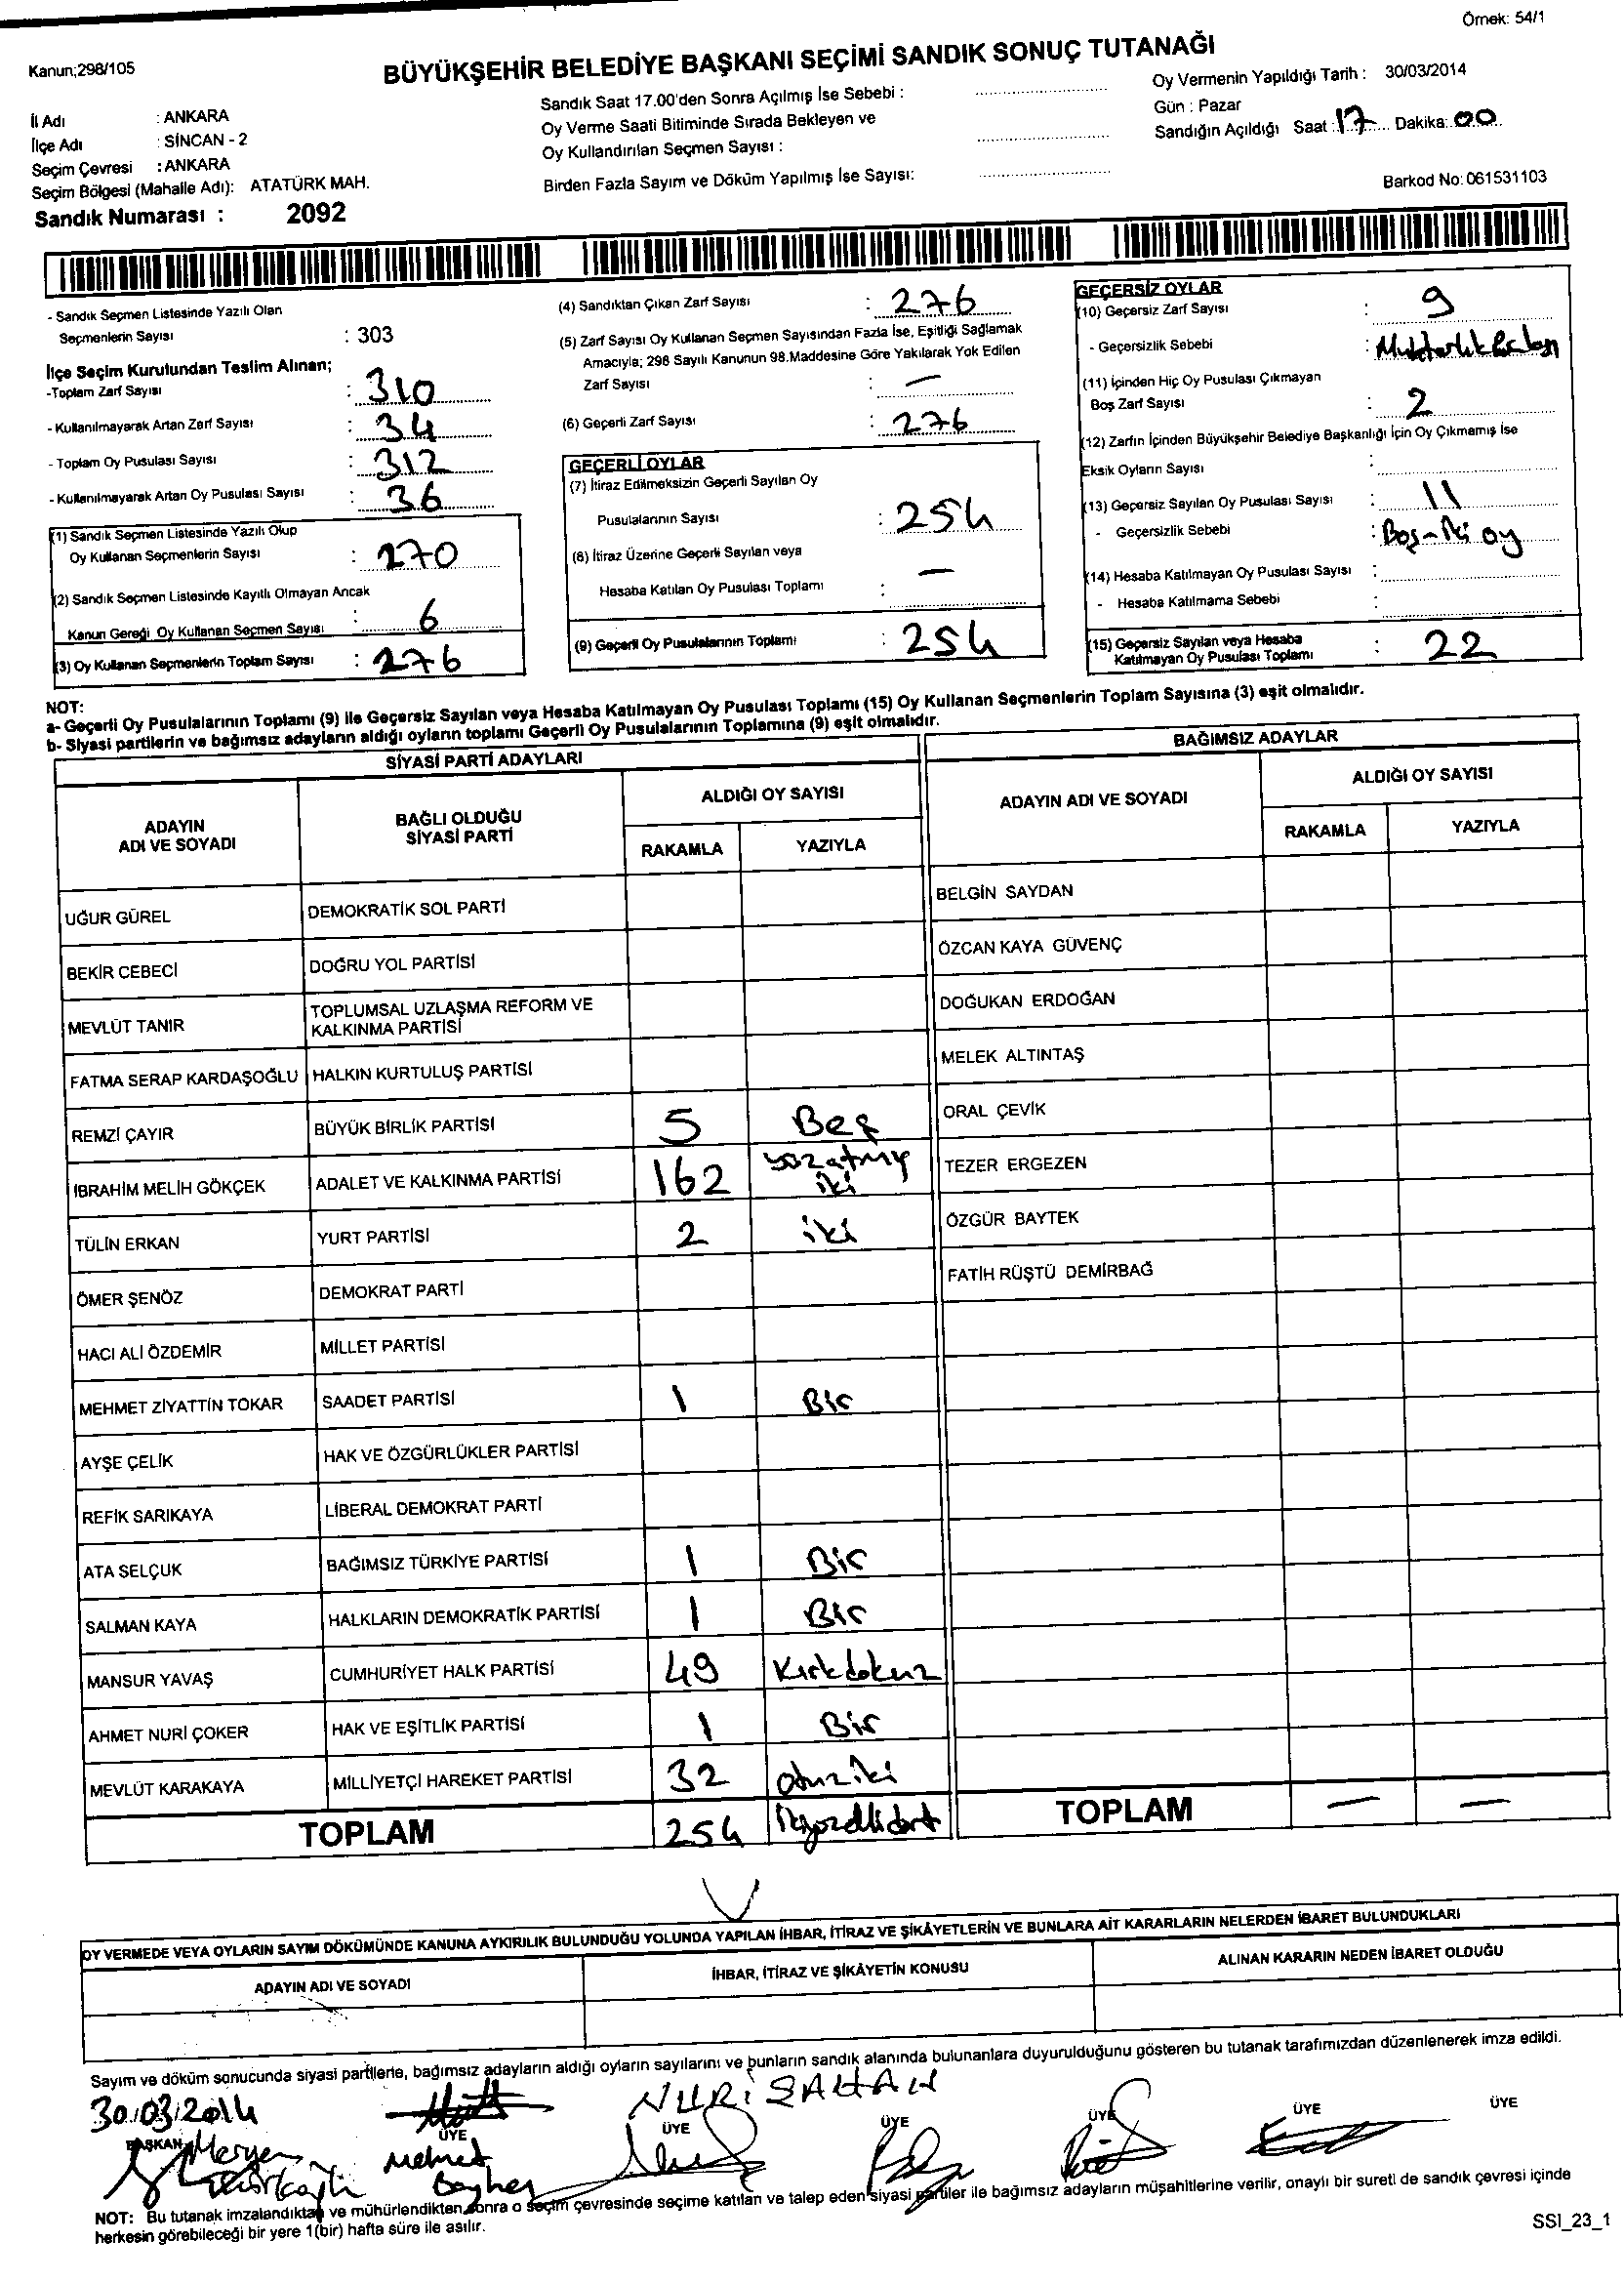 Örnek: 54/1
Kanun;298/105
BÜYÜKŞEHİR BELEDİYE BAŞKANI SEÇİMİ SANDIK SONUÇ TUTANAĞI
İl Adı : ANKARA
İlçe Adı : SİNCAN - 2
Seçim Çevresi : ANKARA
Seçim Bölgesi (Mahalle Adı): ATATÜRK MAH.
Sandık Numarası : 2092
Sandık Saat 17.00'den Sonra Açılmış İse Sebebi :
Oy Verme Saati Bitiminde Sırada Bekleyen ve
Oy Kullandırılan Seçmen Sayısı :
Birden Fazla Sayım ve Döküm Yapılmış İse Sayısı:
Oy Vermenin Yapıldığı Tarih : 30/03/2014
Gün : Pazar
Sandığın Açıldığı Saat : 17 Dakika: 00
Barkod No: 061531103
- Sandık Seçmen Listesinde Yazılı Olan
Seçmenlerin Sayısı : 303
İlçe Seçim Kurulundan Teslim Alınan;
-Toplam Zarf Sayısı : 310
- Kullanılmayarak Artan Zarf Sayısı : 34
- Toplam Oy Pusulası Sayısı : 312
- Kullanılmayarak Artan Oy Pusulası Sayısı : 36
(1) Sandık Seçmen Listesinde Yazılı Olup
Oy Kullanan Seçmenlerin Sayısı : 270
(2) Sandık Seçmen Listesinde Kayıtlı Olmayan Ancak
Kanun Gereği Oy Kullanan Seçmen Sayısı : 6
(3) Oy Kullanan Seçmenlerin Toplam Sayısı : 276
(4) Sandıktan Çıkan Zarf Sayısı : 276
(5) Zarf Sayısı Oy Kullanan Seçmen Sayısından Fazla İse, Eşitliği Sağlamak
Amacıyla; 298 Sayılı Kanunun 98.Maddesine Göre Yakılarak Yok Edilen
Zarf Sayısı : —
(6) Geçerli Zarf Sayısı : 276
GEÇERLİ OYLAR
(7) İtiraz Edilmeksizin Geçerli Sayılan Oy
Pusulalarının Sayısı : 254
(8) İtiraz Üzerine Geçerli Sayılan veya
Hesaba Katılan Oy Pusulası Toplamı : —
(9) Geçerli Oy Pusulalarının Toplamı : 254
GEÇERSİZ OYLAR
(10) Geçersiz Zarf Sayısı : 9
- Geçersizlik Sebebi :
(11) İçinden Hiç Oy Pusulası Çıkmayan
Boş Zarf Sayısı : 2
(12) Zarfın İçinden Büyükşehir Belediye Başkanlığı İçin Oy Çıkmamış İse
Eksik Oyların Sayısı :
(13) Geçersiz Sayılan Oy Pusulası Sayısı : 11
- Geçersizlik Sebebi : Boş - İki oy
(14) Hesaba Katılmayan Oy Pusulası Sayısı :
- Hesaba Katılmama Sebebi :
(15) Geçersiz Sayılan veya Hesaba
Katılmayan Oy Pusulası Toplamı : 22
NOT:
a- Geçerli Oy Pusulalarının Toplamı (9) ile Geçersiz Sayılan veya Hesaba Katılmayan Oy Pusulası Toplamı (15) Oy Kullanan Seçmenlerin Toplam Sayısına (3) eşit olmalıdır.
b- Siyasi partilerin ve bağımsız adayların aldığı oyların toplamı Geçerli Oy Pusulalarının Toplamına (9) eşit olmalıdır.
SİYASİ PARTİ ADAYLARI
ADAYIN ADI VE SOYADI BAĞLI OLDUĞU SİYASİ PARTİ ALDIĞI OY SAYISI
RAKAMLA YAZIYLA
UĞUR GÜREL DEMOKRATİK SOL PARTİ
BEKİR CEBECİ DOĞRU YOL PARTİSİ
MEVLÜT TANIR TOPLUMSAL UZLAŞMA REFORM VE KALKINMA PARTİSİ
FATMA SERAP KARDAŞOĞLU HALKIN KURTULUŞ PARTİSİ
REMZİ ÇAYIR BÜYÜK BİRLİK PARTİSİ 5 Beş
İBRAHİM MELİH GÖKÇEK ADALET VE KALKINMA PARTİSİ 162 yüzatmış iki
TÜLİN ERKAN YURT PARTİSİ 2 iki
ÖMER ŞENÖZ DEMOKRAT PARTİ
HACI ALİ ÖZDEMİR MİLLET PARTİSİ
MEHMET ZİYATTİN TOKAR SAADET PARTİSİ 1 Bir
AYŞE ÇELİK HAK VE ÖZGÜRLÜKLER PARTİSİ
REFİK SARIKAYA LİBERAL DEMOKRAT PARTİ
ATA SELÇUK BAĞIMSIZ TÜRKİYE PARTİSİ 1 Bir
SALMAN KAYA HALKLARIN DEMOKRATİK PARTİSİ 1 Bir
MANSUR YAVAŞ CUMHURİYET HALK PARTİSİ 49 Kırkdokuz
AHMET NURİ ÇOKER HAK VE EŞİTLİK PARTİSİ 1 Bir
MEVLÜT KARAKAYA MİLLİYETÇİ HAREKET PARTİSİ 32 otuziki
TOPLAM 254 İkiyüzellidört
BAĞIMSIZ ADAYLAR
ADAYIN ADI VE SOYADI ALDIĞI OY SAYISI
RAKAMLA YAZIYLA
BELGİN SAYDAN
ÖZCAN KAYA GÜVENÇ
DOĞUKAN ERDOĞAN
MELEK ALTINTAŞ
ORAL ÇEVİK
TEZER ERGEZEN
ÖZGÜR BAYTEK
FATİH RÜŞTÜ DEMİRBAĞ
TOPLAM — —
OY VERMEDE VEYA OYLARIN SAYIM DÖKÜMÜNDE KANUNA AYKIRILIK BULUNDUĞU YOLUNDA YAPILAN İHBAR, İTİRAZ VE ŞİKÂYETLERİN VE BUNLARA AİT KARARLARIN NELERDEN İBARET BULUNDUKLARI
ADAYIN ADI VE SOYADI İHBAR, İTİRAZ VE ŞİKÂYETİN KONUSU ALINAN KARARIN NEDEN İBARET OLDUĞU
Sayım ve döküm sonucunda siyasi partilerle, bağımsız adayların aldığı oyların sayılarını ve bunların sandık alanında bulunanlara duyurulduğunu gösteren bu tutanak tarafımızdan düzenlenerek imza edildi.
30/03/2014 NURİ ŞAHAN
BAŞKAN ÜYE ÜYE ÜYE ÜYE ÜYE ÜYE
Meryem Mehmet
NOT: Bu tutanak imzalandıktan ve mühürlendikten sonra o seçim çevresinde seçime katılan ve talep eden siyasi partiler ile bağımsız adayların müşahitlerine verilir, onaylı bir sureti de sandık çevresi içinde
herkesin görebileceği bir yere 1(bir) hafta süre ile asılır.
SSI_23_1